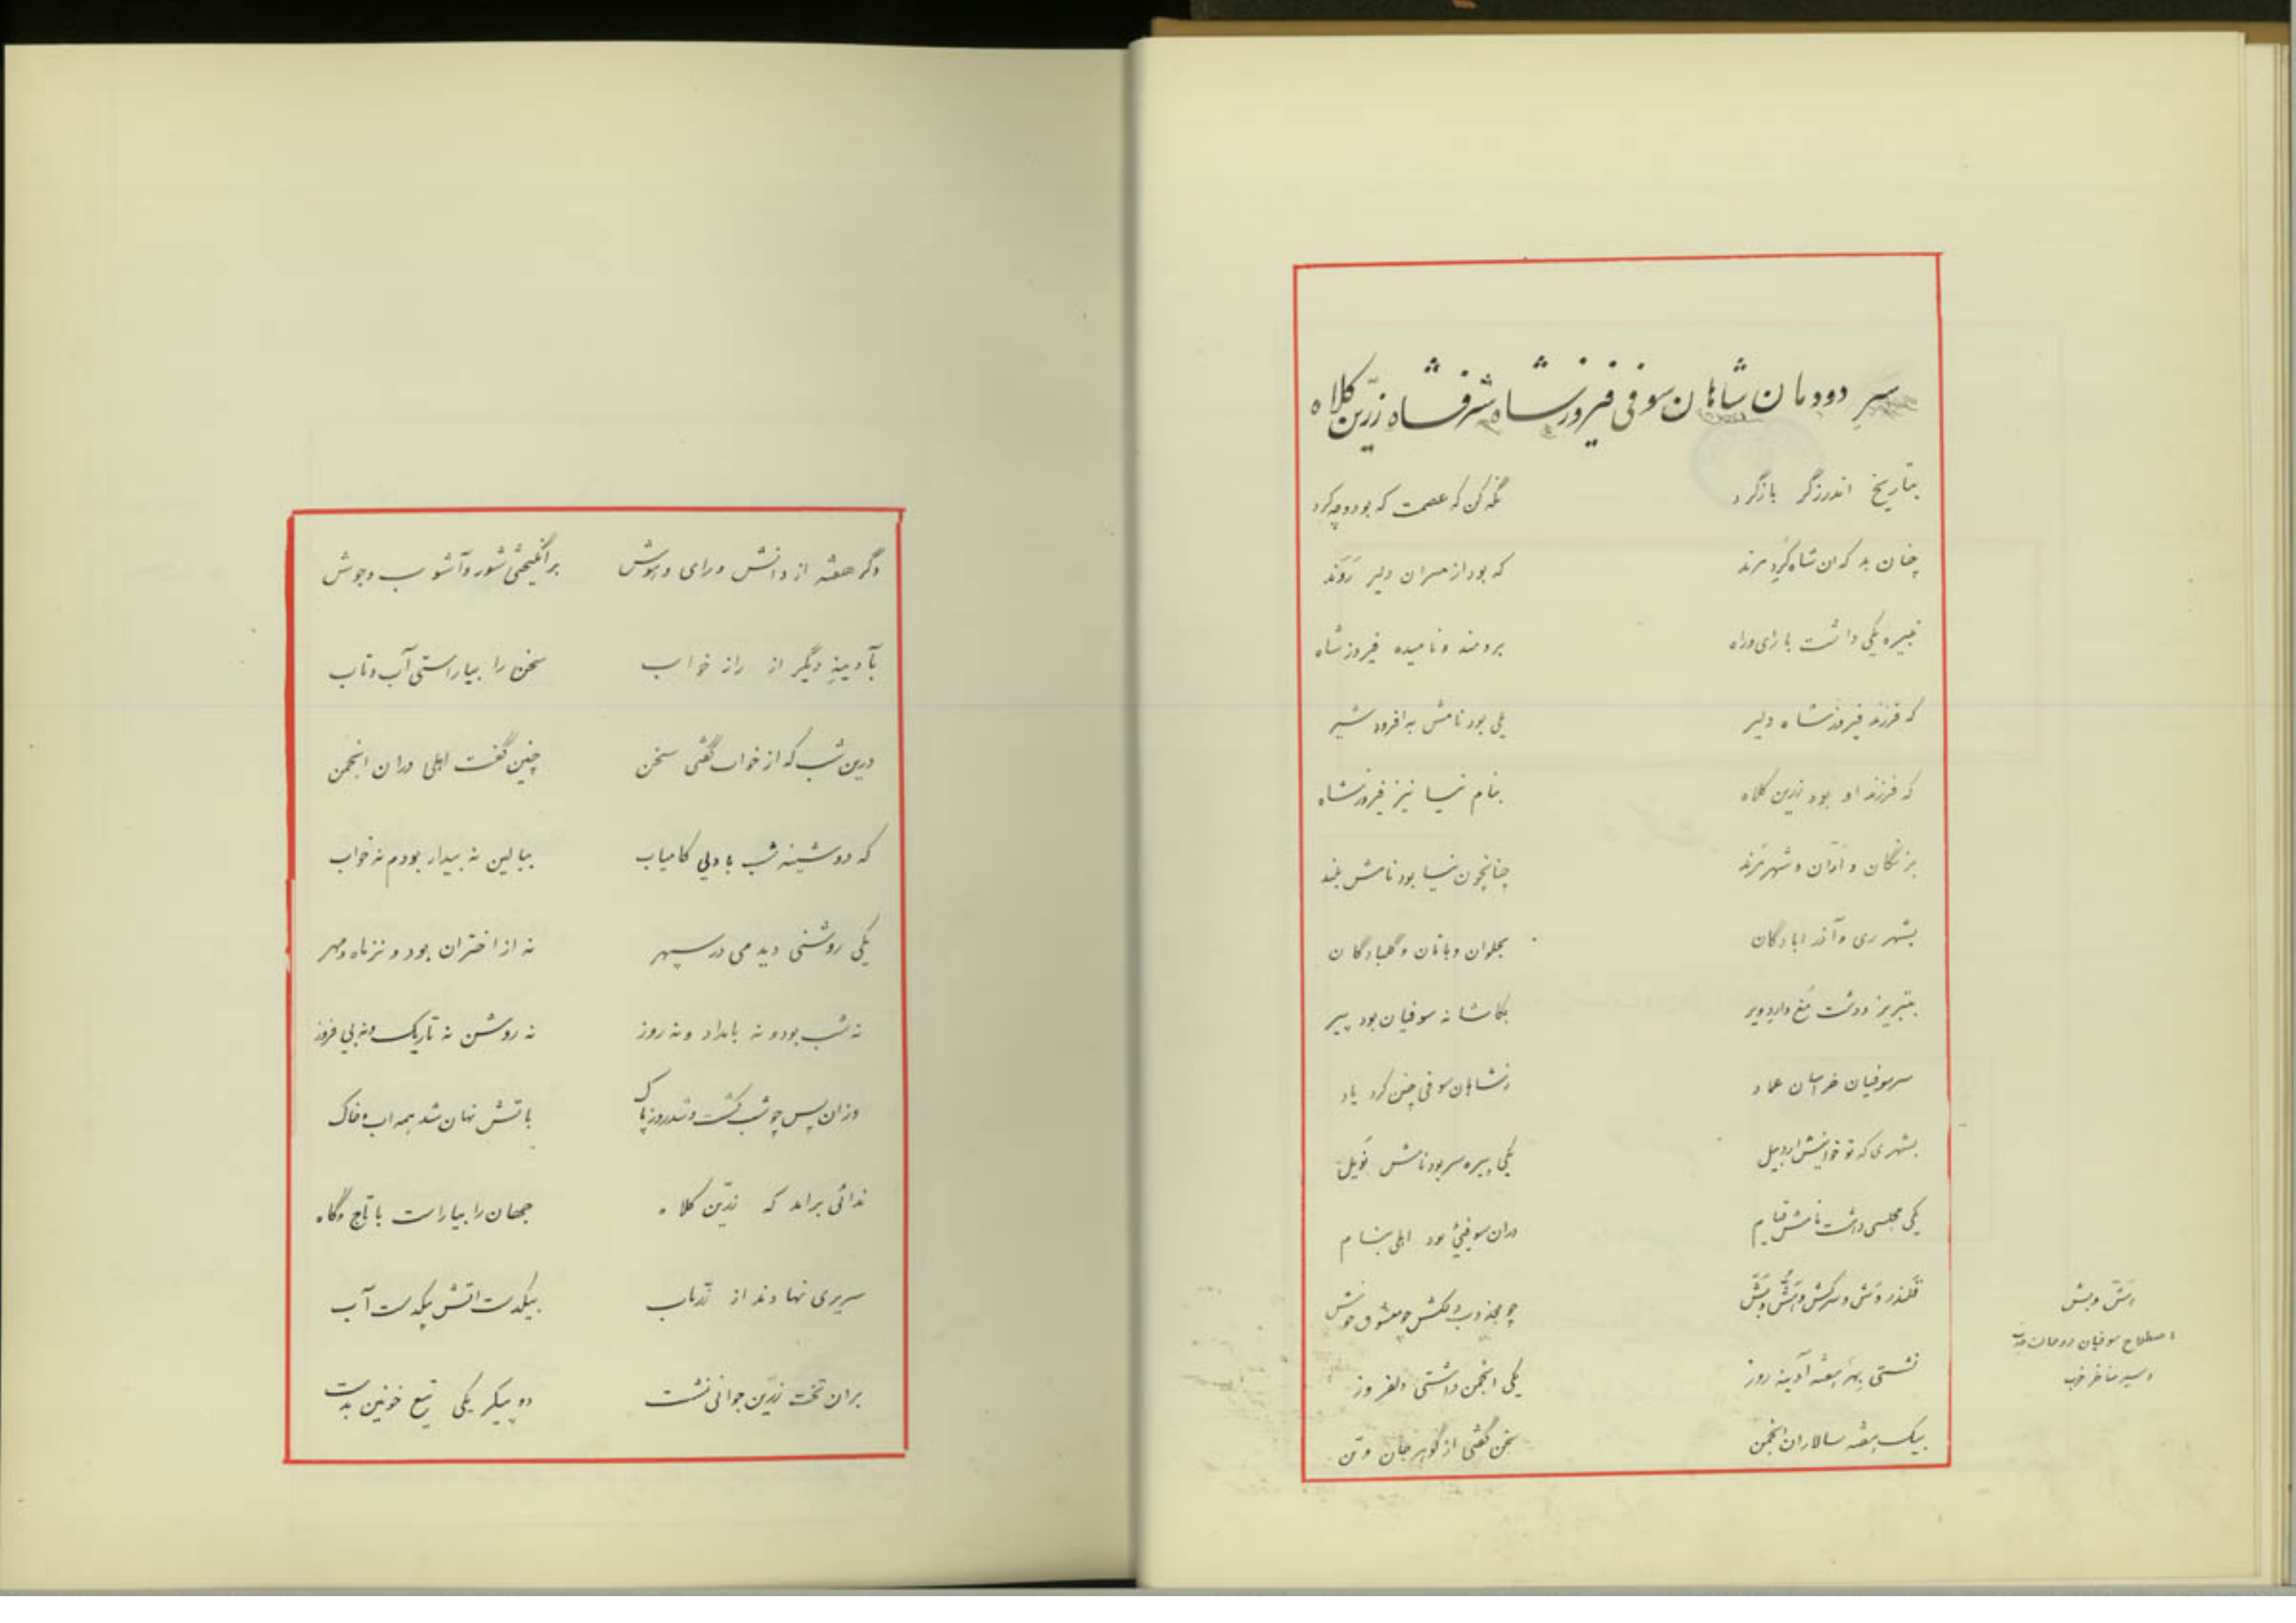 سر دودمان شاهان سوفی فیروزشاه شرفشاه زرّین کلاه
بتاریخ اندرزگر بازگرد نگه کن که عصمت که بود و چه کرد
چنان بد که ان شاه کُرد مرند که بود از سران دلیر رَوَند
نبیره یکی داشت با رای و راه برومند و نامیده فیروزشاه
که فرزند فیروزشاه دلیر یلی بود نامش به افرود شیر
که فرزند او بود زرین کلاه بنام نیا نیز فیروزشاه
بزنگان و اَرّان و شهر مَرَند چنانچون نیا بود نامش بلند
بشهر ری و آذر ابادگان بحلوان و بانان و گلبادگان
بتبریز و دشت مغ و اردویر بکاشانه سوفیان بود پیر
سر سوفیان خراسان عماد زشاهان سوفی چنین کرد یاد
بشهری که تو خوانیش اردبیل یکی پیره سر بود نامش نَویل
یکی مجلسی داشت نامش قیام دران سوفیئی بود اهلی بنام
قلندر وش و سرکش و اَشّ و بَشّ چو مجذوب دلکش چو معشوق خوش
نشستی بهر هفته آدینه روز یکی انجمن داشتی دلفروز
بیک هفته سالاران انجمن سخن گفتی از گوهر جان و تن
اَشّ و بش
اصطلاح سوفیان در حالت جذب
و سیر مناظر خوب
دگر هفته از دانش و رای و هوش برانگیختی شور و آشوب و جوش
بآدینهٔ دیگر از راز خواب سخن را بیاراستی آب و تاب
درین شب که از خواب گفتی سخن چنین گفت اهلی دران انجمن
که دوشینه شب با دلی کامیاب ببالین نه بیدار بودم نه خواب
یکی روشنی دیدمی در سپهر نه از اختران بود و نز ماه و مهر
نه شب بود و نه بامداد و نه روز نه روشن نه تاریک و نه بی فروز
وزان پس چو شب گشت و شد روز پاک باتش نهان شد همه اب و خاک
ندائی برامد که زرّین کلاه جهان را بیاراست با تاج و گاه
سریری نهادند از زرّ ناب بیکدست اتش بیکدست آب
بران تخت زرّین جوانی نشست دو پیکر یکی تیغ خونین بدست